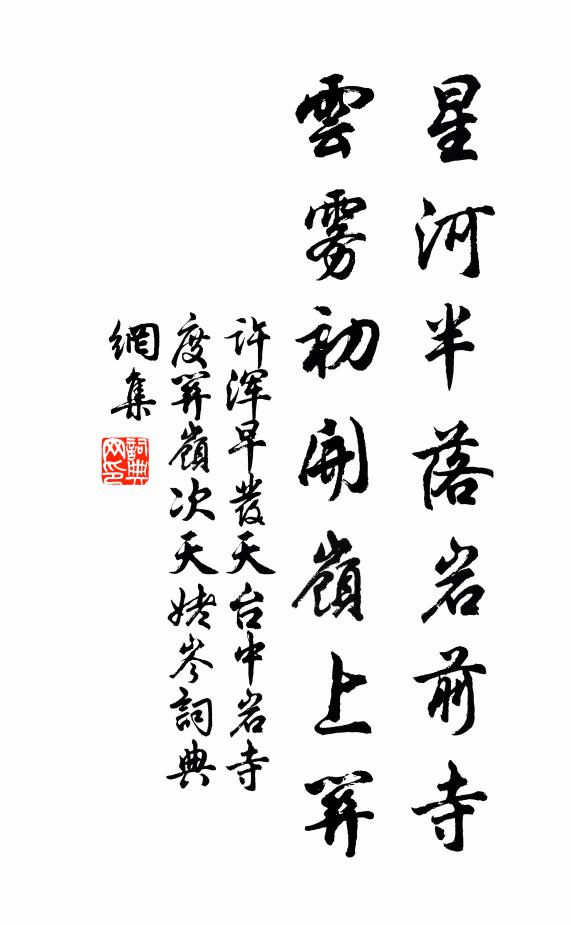 星河半落岩前寺
雲雾初開嶺上關
许渾早發天台中岩寺
度關嶺次天姥岑詞典
網集
詞典
网印